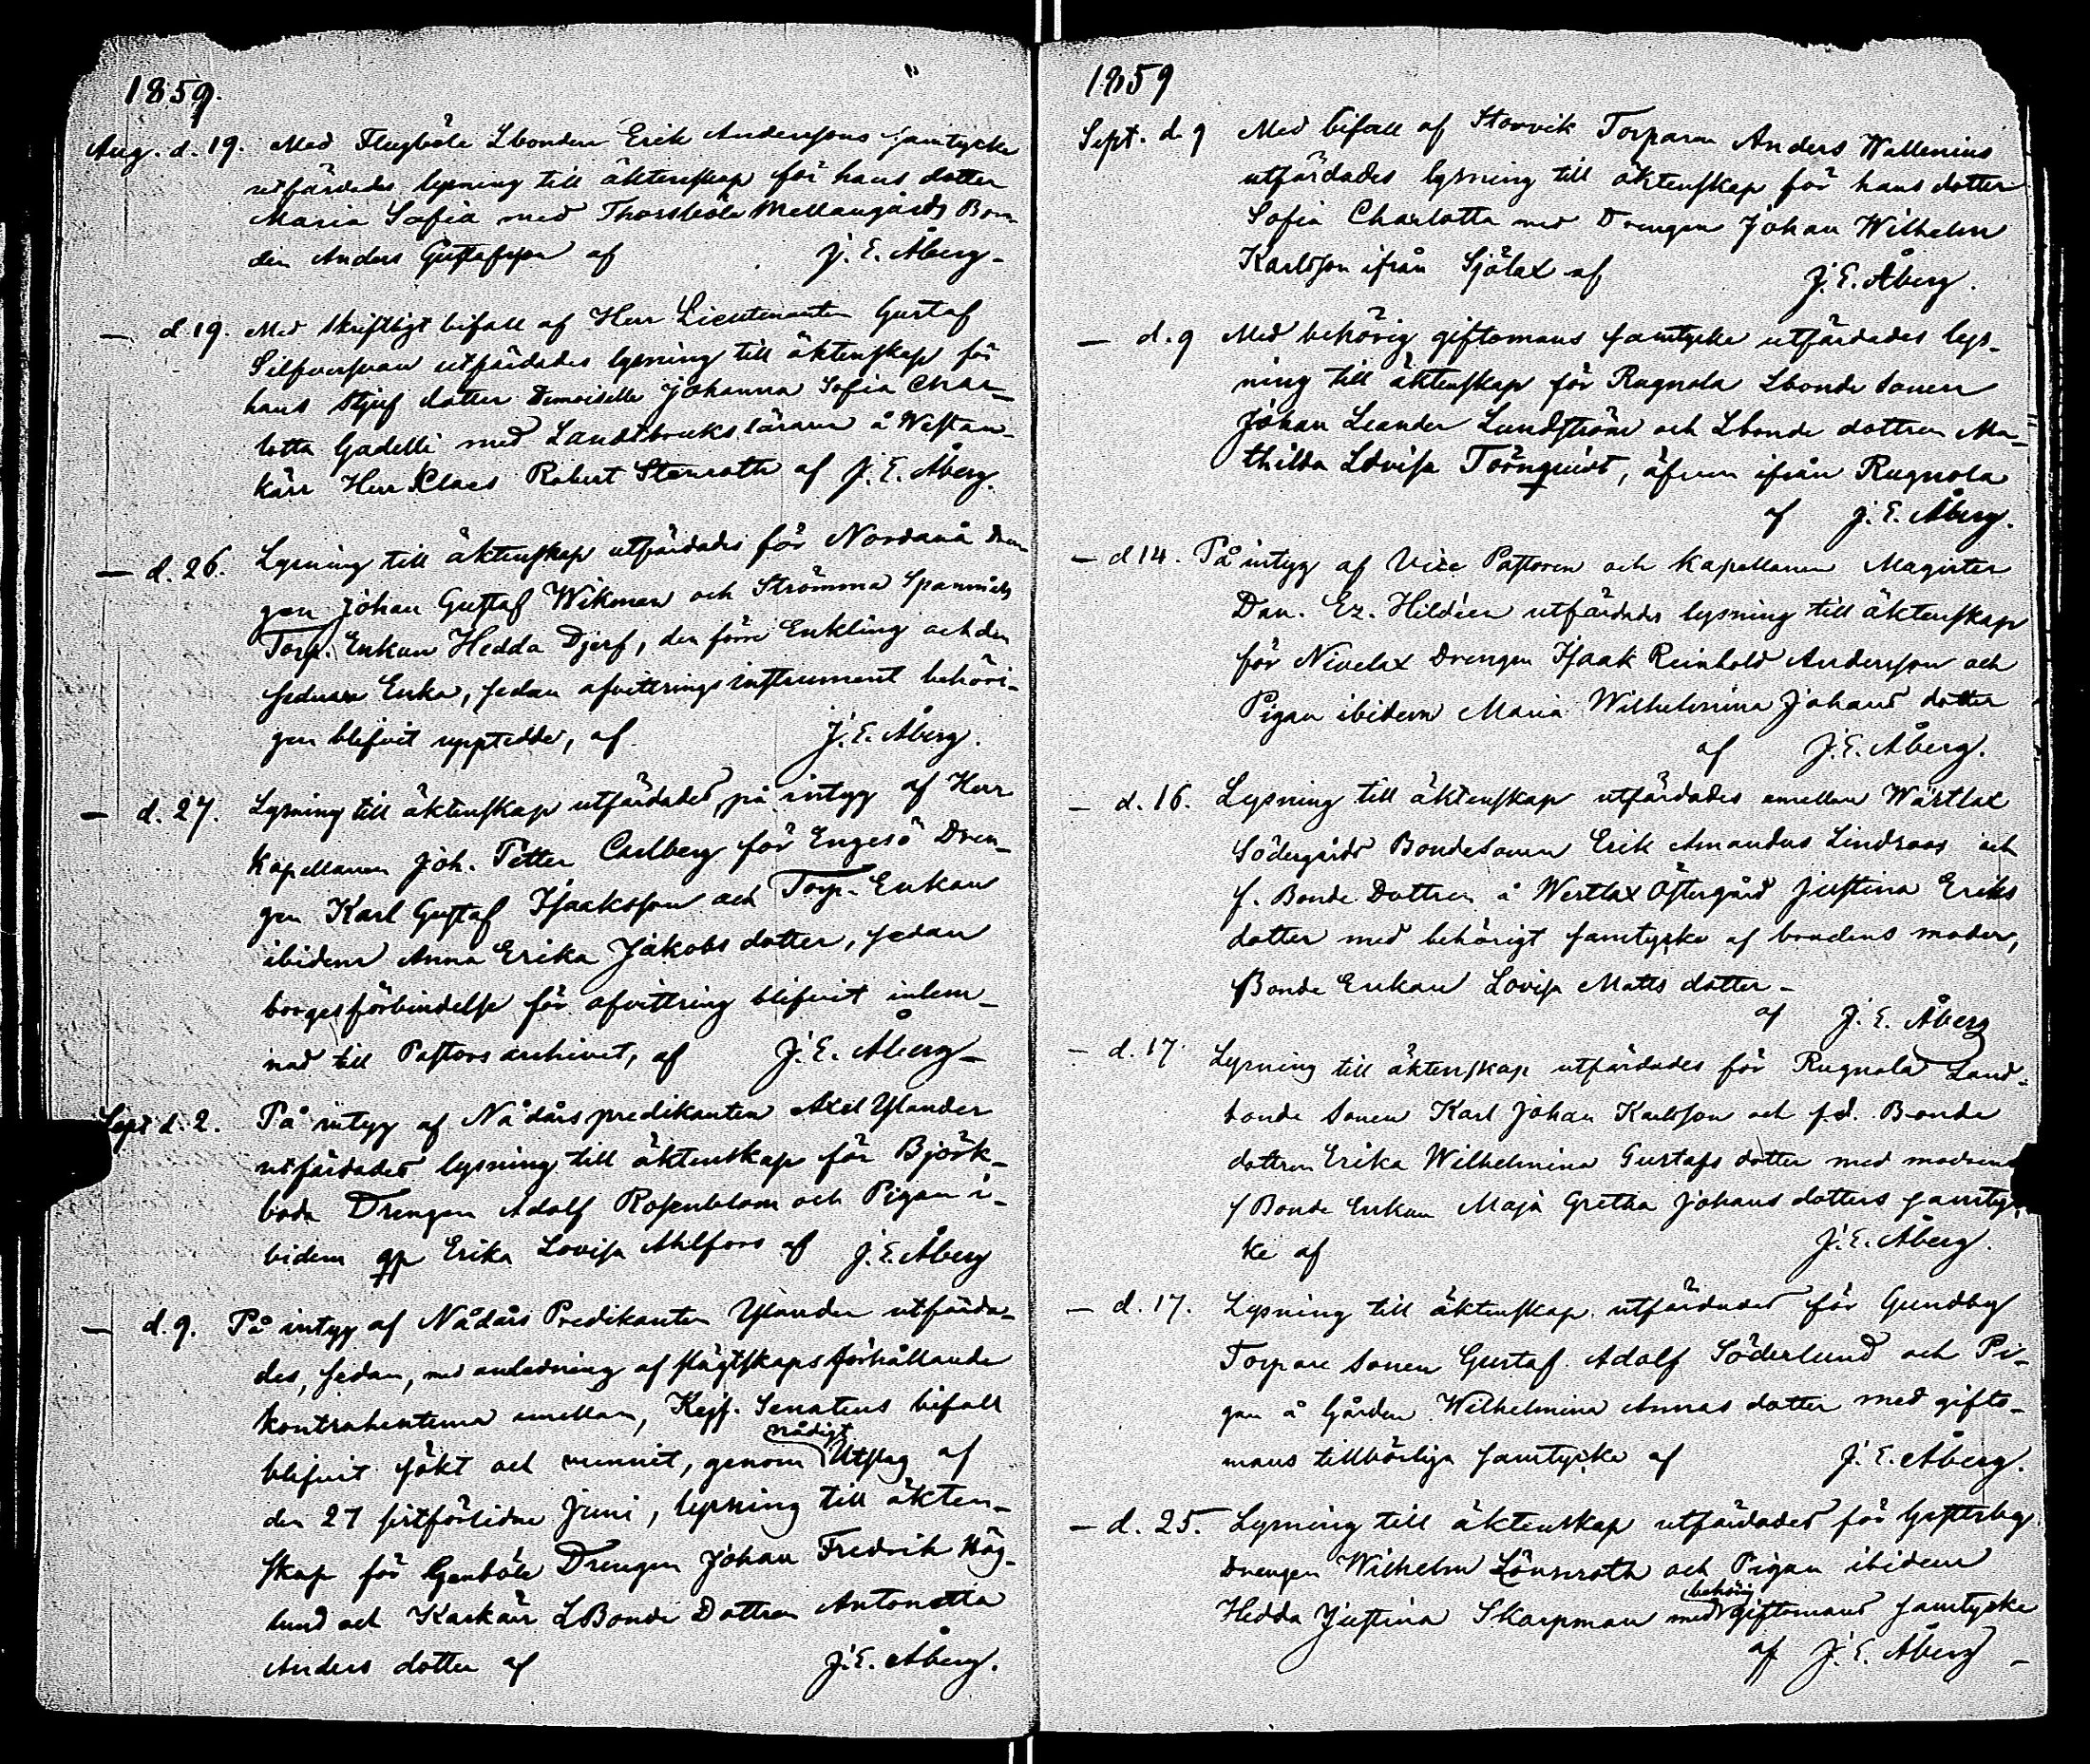 1859.
Aug. d. 19. Med Flugböle Lbonden Erik Anderssons samtycke
utfärdades lysning till äktenskap för hans dotter
Maria Sofia med Thorsböle Mellangårds Bon-
den Anders Gustafsson af J. E. Åberg-
— d. 19. Med skriftligt bifall af Herr Lieutenanten Gustaf
Silfversvan utfärdades lysning till äktenskap för
hans styfdotter Demoiselle Johanna Sofia Char-
lotta Gadelli med Landtbruksläraren å Westan-
kärr Herr Klaes Robert Stenroth af J. E. Åberg.
— d. 26. Lysning till äktenskap utfärdades för Nordanå Dren-
gen Johan Gustaf Wikman och Strömma Spannmåls
Torp. Enkan Hedda Djerf, den förre Enkling och den
sednare Enka, sedan afvittringsinstrument behöri-
gen blifvit uppteddt, af J. E. Åberg.
— d. 27. Lysning till äktenskap utfärdades på intyg af Herr
Kapellanen Joh. Petter Carlberg för Engesö Dren-
gen Karl Gustaf Isaaksson och Torp. Enkan
ibidem Anna Erika Jakobs dotter, sedan
borgesförbindelse för afvittring blifvit inlem-
nad till Pastorsarchivet, af J. E. Åberg-
Sept d. 2. På intyg af Nådårspredikanten Axel Ylander
utfärdades lysning till äktenskap för Björk-
boda Drengen Adolf Rosenblom och Pigan i-
bidem Erika Lovisa Ahlfors af J. E. Åberg
— d. 9. På intyg af Nådårs Predikanten Ylander utfärda-
des, sedan, med anledning af slägtskapsförhållande
kontrahenterna emellan, Kejs. Senatens bifall
blifvit sökt och vunnit, genom nådigt Utslag af
den 27 sistförlidne Juni, lysning till äkten-
skap för Genböle Drengen Johan Fredrik Häg-
lund och Karkärr LBonde Dottren Antonetta
Anders dotter af J. E. Åberg.
1859
Sept. d. 9 Med bifall af Storvik Torparen Anders Wallenius
utfärdades lysning till äktenskap för hans dotter
Sofia Charlotta med Drengen Johan Wilhelm
Karlsson ifrån Sjölax af J. E. Åberg.
— d. 9 Med behörig giftomans samtycke utfärdades lys-
ning till äktenskap för Rugnola Lbonde sonen
Johan Leander Lundström och Lbonde dottren Ma-
thilda Lovisa Törnquist, äfven ifrån Rugnola
af J. E. Åberg.
— d 14. På intyg af Vice Pastoren och Kapellanen Magister
Dan. Ez. Hildéen utfärdades lysning till äktenskap
för Nivelax Drengen Isaak Reinhold Andersson och
Pigan ibidem Maria Wilhelmina Johans dotter
af J. E. Åberg.
— d. 16. Lysning till äktenskap utfärdades emellan Wärtlax
Södergårds Bondesonen Erik Amandus Lindroos och
f. Bonde Dottren å Westlax Östergård Justina Eriks
dotter med behörigt samtycke af brudens moder,
Bonde Enkan Lovisa Matts dotter-
af J. E. Åberg
— d. 17. Lysning till äktenskap utfärdades för Rugnola Land-
bonde Sonen Karl Johan Karlsson och f.d. Bonde
dottren Erika Wilhelmina Gustafs dotter med modrens
f Bonde Enkan Maja Gretha Johans dotters samtyc-
ke af J. E. Åberg.
— d. 17. Lysning till äktenskap utfärdades för Gundby
Torpare Sonen Gustaf Adolf Söderlund och Pi-
gan å Gården Wilhelmina Annas dotter med gifto-
mans tillbörliga samtycke af J. E. Åberg.
— d. 25. Lysning till äktenskap utfärdades för Gesterby
Drengen Wilhelm Lönnroth och Pigan ibidem
Hedda Justina Skarpman med behörig giftomans samtycke
af J. E. Åberg-